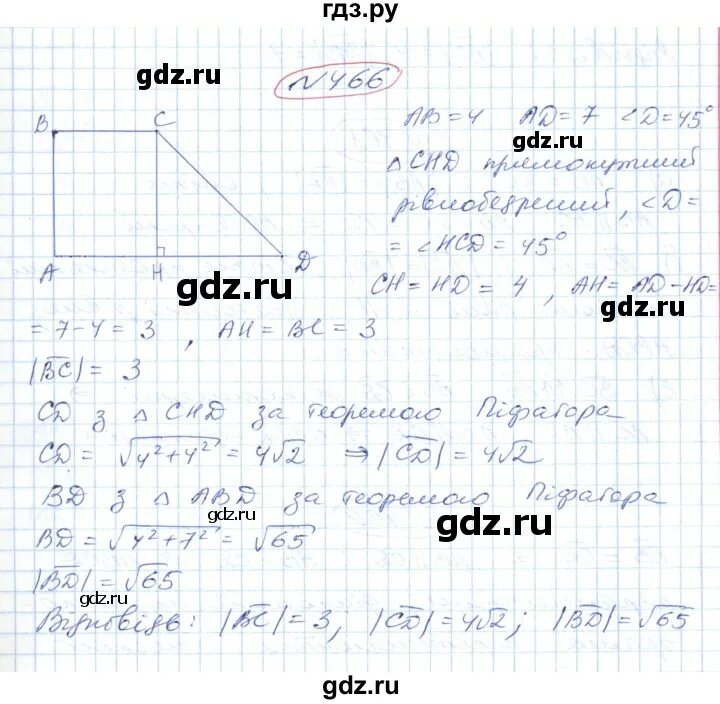 гдз.ру
gdz.ru
№466
B C
AB=4 AD=7 ∠D=45°
gdz.ru
△CHD прямокутний
рівнобедрений, ∠D=
= ∠HCD = 45°
A H D
gdz.ru
CH = HD = 4 , AH = AD - HD =
gdz.ru
= 7 - 4 = 3 , AH = BC = 3
|BC| = 3
CD з △ CHD за теоремою Піфагора
CD = √4²+4² = 4√2 ⇒ |CD| = 4√2
BD з △ ABD за теоремою Піфагора
gdz.ru
gdz.ru
BD = √4²+7² = √65
|BD| = √65
gdz.ru
Відповідь: |BC| = 3; |CD| = 4√2; |BD| = √65
gdz.ru